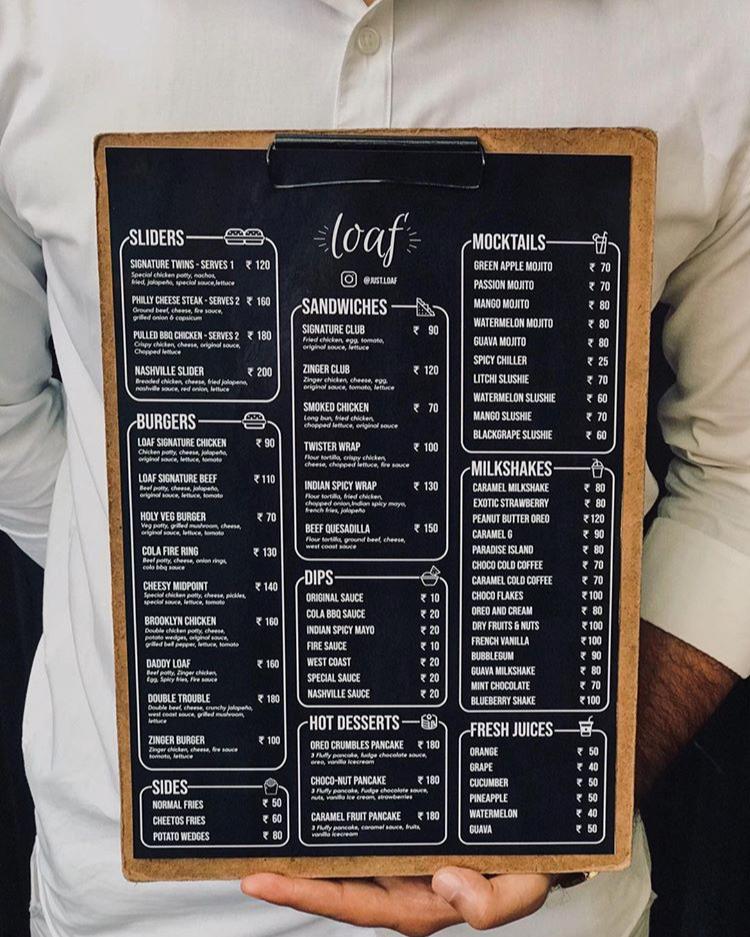 loaf
@JUST.LOAF
SLIDERS
SIGNATURE TWINS - SERVES 1 ₹ 120
Special chicken patty, nachos,
fried, jalapeño, special sauce,lettuce
PHILLY CHEESE STEAK - SERVES 2 ₹ 160
Ground beef, cheese, fire sauce,
grilled onion & capsicum
PULLED BBQ CHICKEN - SERVES 2 ₹ 180
Crispy chicken, cheese, original sauce,
Chopped lettuce
NASHVILLE SLIDER ₹ 200
Breaded chicken, cheese, fried jalapeno,
nashville sauce, red onion, lettuce
BURGERS
LOAF SIGNATURE CHICKEN ₹ 90
Chicken patty, cheese, jalapeño,
original sauce, lettuce, tomato
LOAF SIGNATURE BEEF ₹ 110
Beef patty, cheese, jalapeño,
original sauce, lettuce, tomato
HOLY VEG BURGER ₹ 70
Veg patty, grilled mushroom, cheese,
original sauce, lettuce, tomato
COLA FIRE RING ₹ 130
Beef patty, cheese, onion rings,
cola bbq sauce
CHEESY MIDPOINT ₹ 140
Special chicken patty, cheese, pickles,
special sauce, lettuce, tomato
BROOKLYN CHICKEN ₹ 160
Double chicken patty, cheese,
potato wedges, original sauce,
grilled bell pepper, lettuce, tomato
DADDY LOAF ₹ 160
Beef patty, Zinger chicken,
Egg, Spicy fries, Fire sauce
DOUBLE TROUBLE ₹ 180
Double beef, cheese, crunchy jalapeño,
west coast sauce, grilled mushroom,
lettuce
ZINGER BURGER ₹ 100
Zinger chicken, cheese, fire sauce
tomato, lettuce
SIDES
NORMAL FRIES ₹ 50
CHEETOS FRIES ₹ 60
POTATO WEDGES ₹ 80
SANDWICHES
SIGNATURE CLUB ₹ 90
Fried chicken, egg, tomato,
original sauce, lettuce
ZINGER CLUB ₹ 120
Zinger chicken, cheese, egg,
original sauce, tomato, lettuce
SMOKED CHICKEN ₹ 70
Long bun, fried chicken,
chopped lettuce, original sauce
TWISTER WRAP ₹ 100
Flour tortilla, crispy chicken,
cheese, chopped lettuce, fire sauce
INDIAN SPICY WRAP ₹ 130
Flour tortilla, fried chicken,
chopped onion,Indian spicy mayo,
french fries, jalapeño
BEEF QUESADILLA ₹ 150
Flour tortilla, ground beef, cheese,
west coast sauce
DIPS
ORIGINAL SAUCE ₹ 10
COLA BBQ SAUCE ₹ 20
INDIAN SPICY MAYO ₹ 20
FIRE SAUCE ₹ 10
WEST COAST ₹ 20
SPECIAL SAUCE ₹ 20
NASHVILLE SAUCE ₹ 20
HOT DESSERTS
OREO CRUMBLES PANCAKE ₹ 180
3 Fluffy pancake, fudge chocolate sauce,
oreo, vanilla icecream
CHOCO-NUT PANCAKE ₹ 180
3 Fluffy pancake, Fudge chocolate sauce,
nuts, vanilla ice cream, strawberries
CARAMEL FRUIT PANCAKE ₹ 180
3 Fluffy pancake, caramel sauce, fruits,
vanilla icecream
MOCKTAILS
GREEN APPLE MOJITO ₹ 70
PASSION MOJITO ₹ 70
MANGO MOJITO ₹ 80
WATERMELON MOJITO ₹ 80
GUAVA MOJITO ₹ 80
SPICY CHILLER ₹ 25
LITCHI SLUSHIE ₹ 70
WATERMELON SLUSHIE ₹ 60
MANGO SLUSHIE ₹ 70
BLACKGRAPE SLUSHIE ₹ 60
MILKSHAKES
CARAMEL MILKSHAKE ₹ 80
EXOTIC STRAWBERRY ₹ 80
PEANUT BUTTER OREO ₹ 120
CARAMEL G ₹ 90
PARADISE ISLAND ₹ 80
CHOCO COLD COFFEE ₹ 70
CARAMEL COLD COFFEE ₹ 70
CHOCO FLAKES ₹ 100
OREO AND CREAM ₹ 80
DRY FRUITS & NUTS ₹ 100
FRENCH VANILLA ₹ 100
BUBBLEGUM ₹ 90
GUAVA MILKSHAKE ₹ 80
MINT CHOCOLATE ₹ 70
BLUEBERRY SHAKE ₹ 100
FRESH JUICES
ORANGE ₹ 50
GRAPE ₹ 40
CUCUMBER ₹ 50
PINEAPPLE ₹ 50
WATERMELON ₹ 40
GUAVA ₹ 50